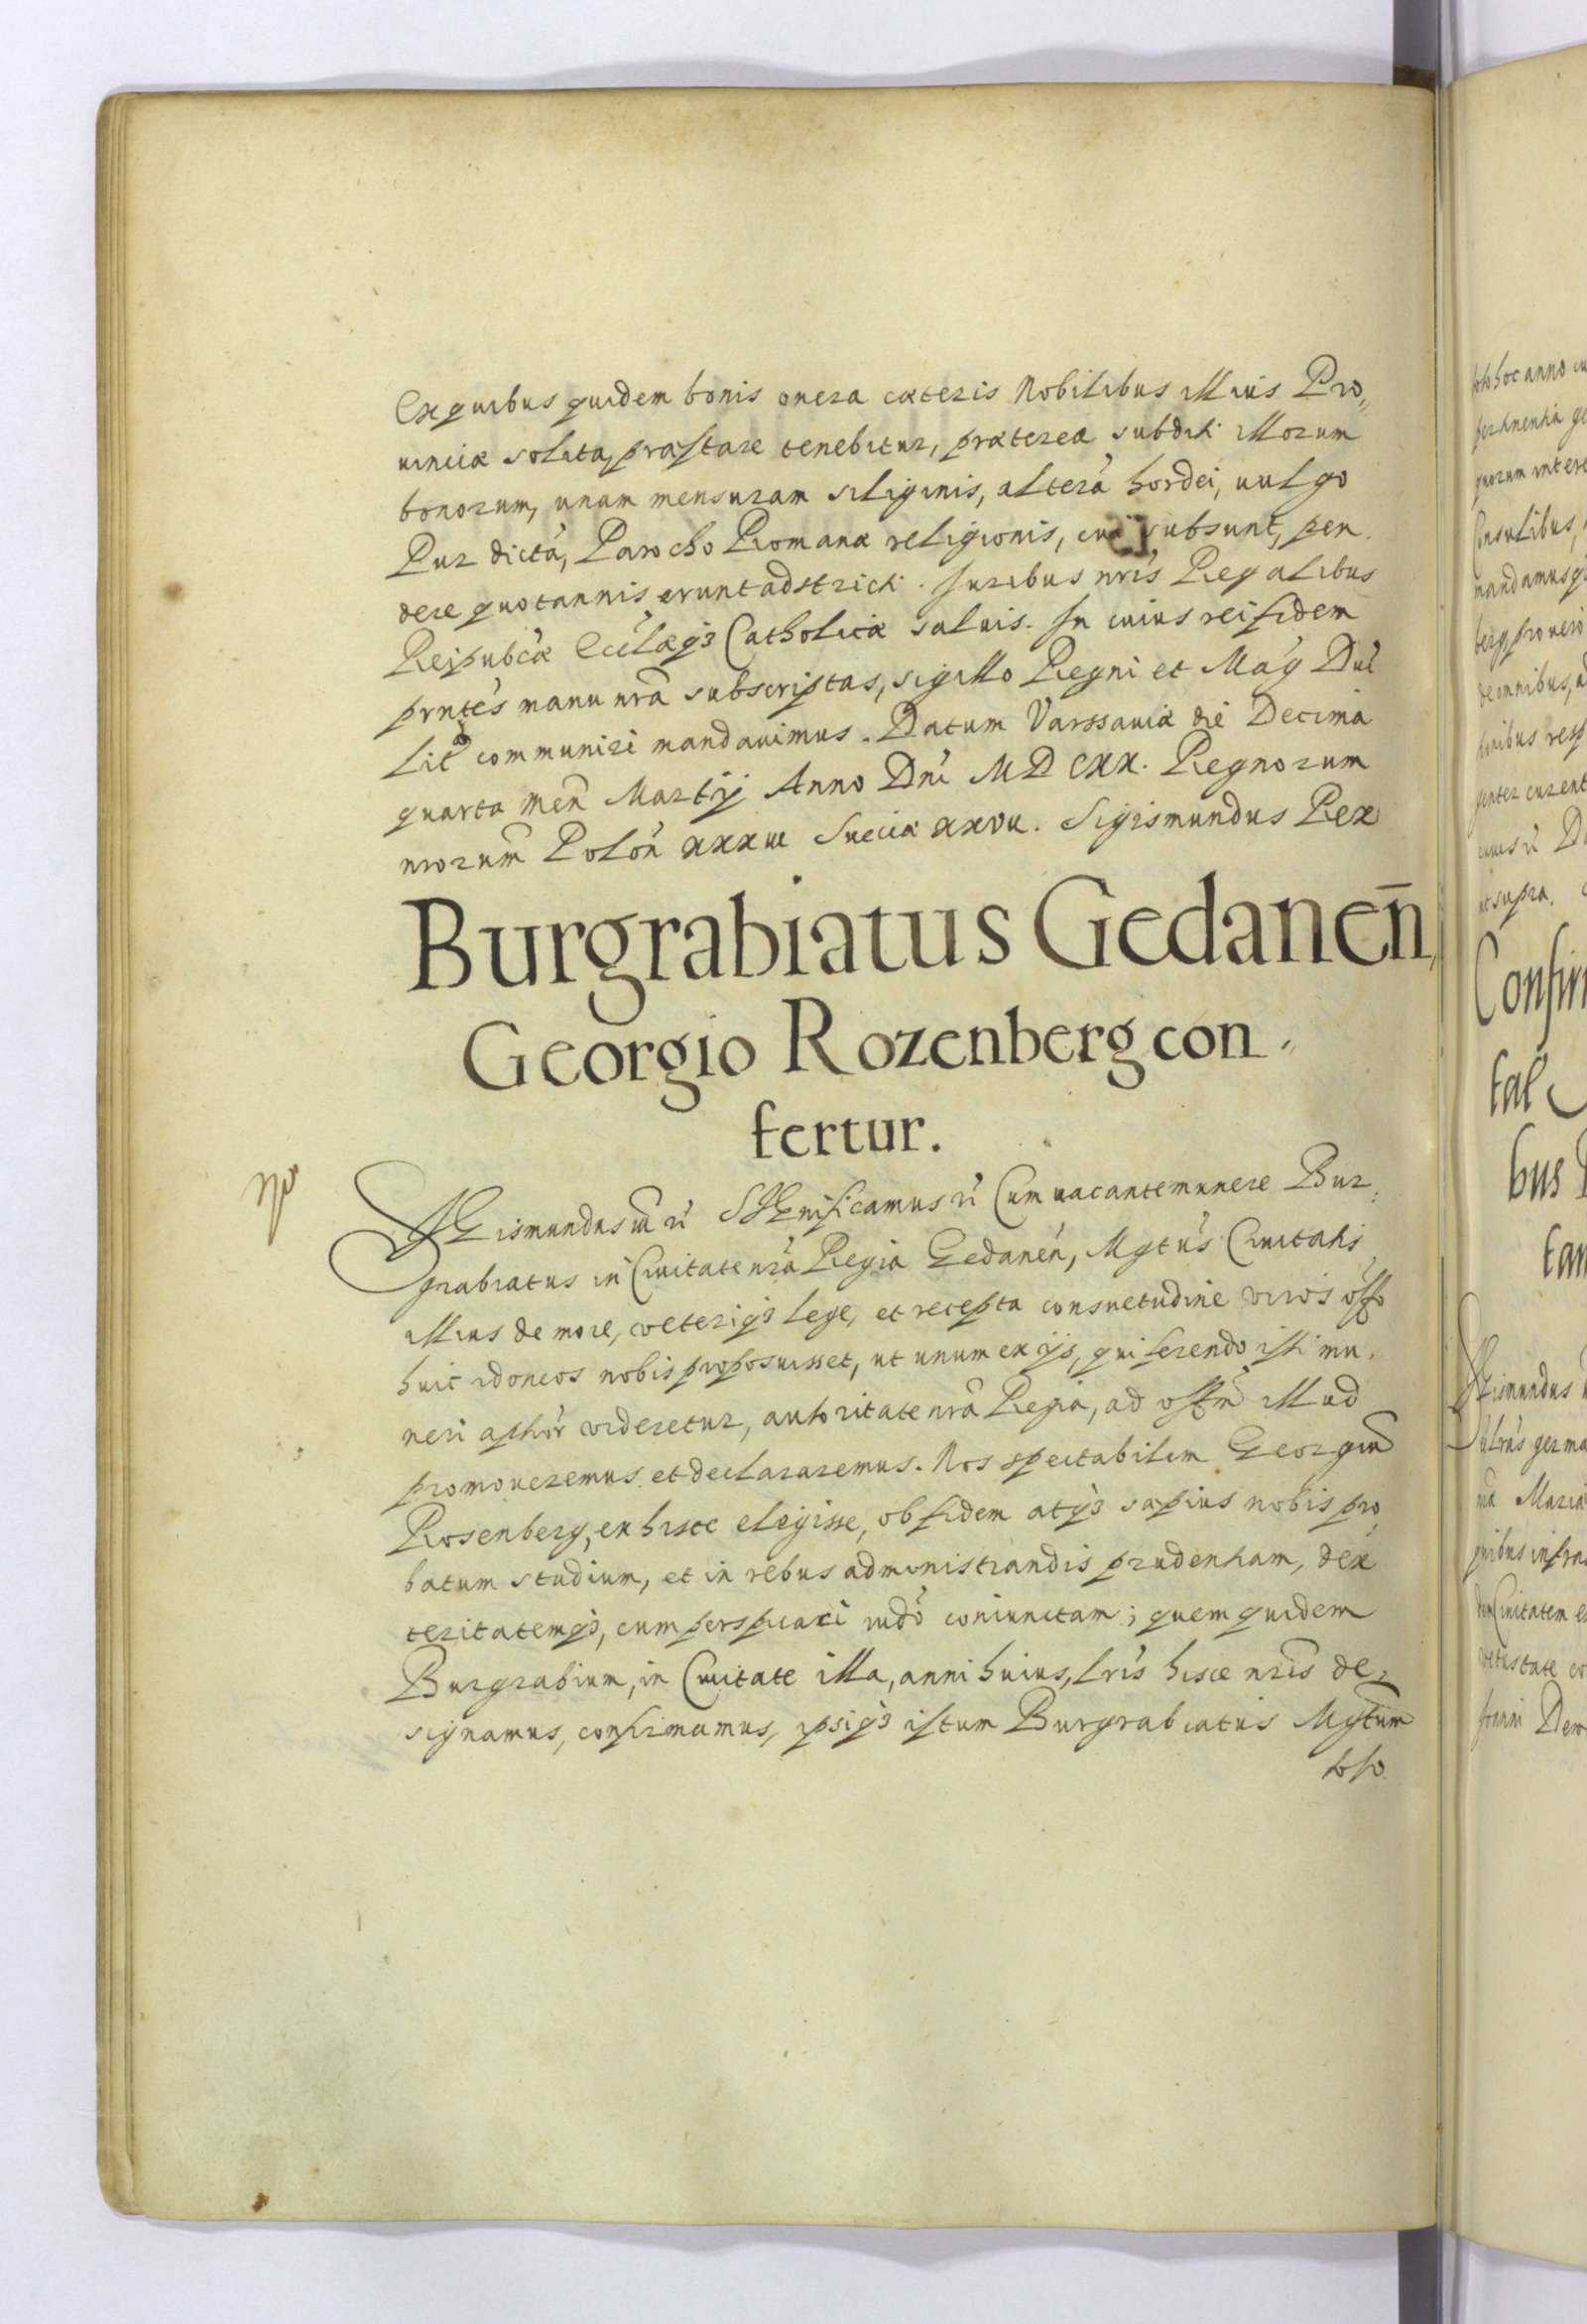 Ex quibus quidem bonis onera cæteris Nobilibus illius Pro„
uinciæ solita, præstare tenebitur, præterea subditi illorum
bonorum, unam mensuram siliginis, alterã hordei, uulgo
Pur dictã, Parocho Romanæ religionis, cui subsunt, pen-
dere quotannis erunt adstricti. Iuribus nrīs Regalibus
Reipubcæ Ecclæq3 Catholicæ saluis. In cuius rei fidem
prntes manu nrã subscriptas, sigillo Regni et Mag Duc
Lit communiri mandauimus. Datum Varssauiæ die Decima
quarta Men Martij Anno Dni MDCXX. Regnorum
nrorum Polon xxxiii Sueciæ xxvii. Sigismundus Rex
Burgrabiatus Gedaneñ,
Georgio Rozenberg con„
fertur.
SIGismundus III rc SIGnificamus rc Cum uacante munere Bur„
grabiatus in Ciuitate nrã Regia Gedanen, Mgtus Ciuitatis
illius de more, veteriq3 lege, et recepta consuetudine viros offo
huic idoneos nobis proposuisset, ut unum ex ijs, qui ferendo isti mu„
neri aptior videretur, autoritate nrã Regia, ad offm illud
promoueremus et declararemus. Nos spectabilem Georgiu
Rosenberg, ex hisce elegisse, ob fidem atq3 sæpius nobis pro„
batum studium, et in rebus administrandis prudentiam, dex
teritatemq3, cum perspicaci iudo coniunctam; quem quidem
Burgrabium, in Ciuitate illa, anni huius, lris hisce nris de„
signamus, confirmamus, ipsiq3 istum Burgrabiatus Mgtum
toto
toto hoc anno
quorum
Consulibus,
mandamus
berg, pro uero
de omnibus,
ut supra.
Confir
tal
bus
tam
Sigismundus
quibus infra
Ciuitatem